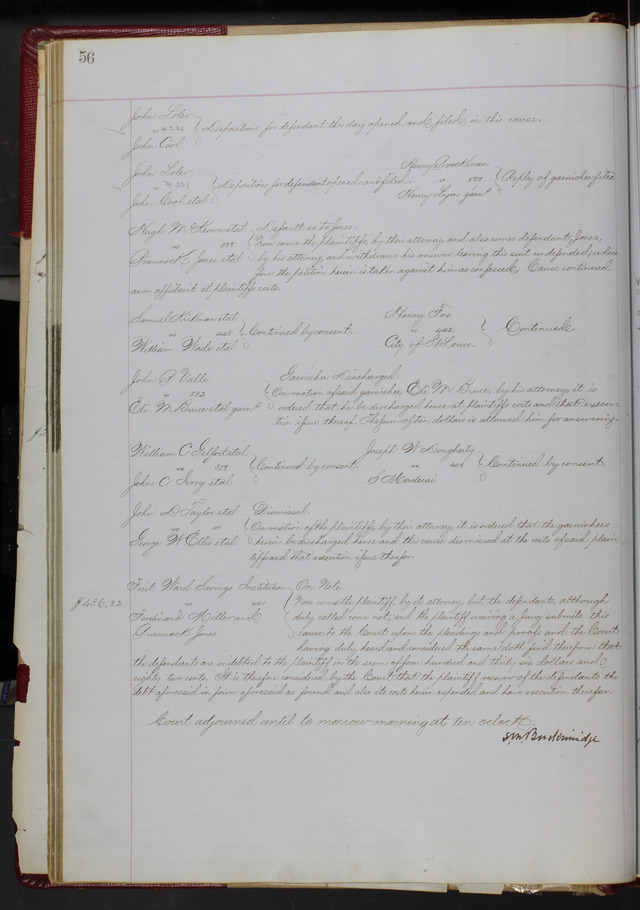 56
John Loler
vs 221 } Deposition for defendant this day opened and filed in this cause.
John Cool
John Loler
vs 221 } Depositions for defendant opened and filed.
John Cool etal
Henry Brockman
vs } Reply of garnishee filed
Henry Lyon garn^e
Hugh McKeown etal Default as to Jones.
vs Now come the plaintiffs by their attorney and also comes defendant, Jones,
Brannock Jones etal by his attorney, and withdraws his answer leaving the suit undefended; where
fore the petition herein is taken against him as confessed; Cause continued
as on affidavit at plaintiffs costs.
Samuel Aikman etal
vs } Continued by consent.
William Wade etal
Henry Fox
vs 442 } Continued.
City of St Louis.
John B Valle Garnishee Discharged
vs 582 On motion of said garnishee, Eli M Bruce, by his attorney, it is
Eli M Bruce etal garn^e ordered that he be discharged hence at plaintiffs costs and that execu-
tion issue thereof. The sum of ten dollars is allowed him for answering.
William C etal
vs } Continued by consent
John C Ivory etal
Joseph W Dougherty
vs } Continued by consent.
S Mordecai
John D Taylor etal Dismissal.
vs On motion of the plaintiffs by their attorney it is ordered that the garnishees
George W Ellis etal herein be discharged hence and this cause dismissed at the costs of said plain
tiffs and that execution issue therefor.
First Ward Savings Institution On Note.
$436,82 vs Now comes the plaintiff, by its attorney, but the defendants, although
Ferdinand Miller and duly called come not, and the plaintiff waiving a jury submits this
Brannock Jones cause to the Court upon the pleadings and proofs and the Court
having duly heard and considered the same doth find therefrom that
the defendants are indebted to the plaintiff in the sum of four hundred and thirty six dollars and
eighty two cents. It is therefore considered by the Court that the plaintiff recover of the defendants the
debt aforesaid in form aforesaid as found and also its costs herein expended and have execution therefor.
Court adjourned until to morrow morning at ten oclock.
S.M. Breckinridge